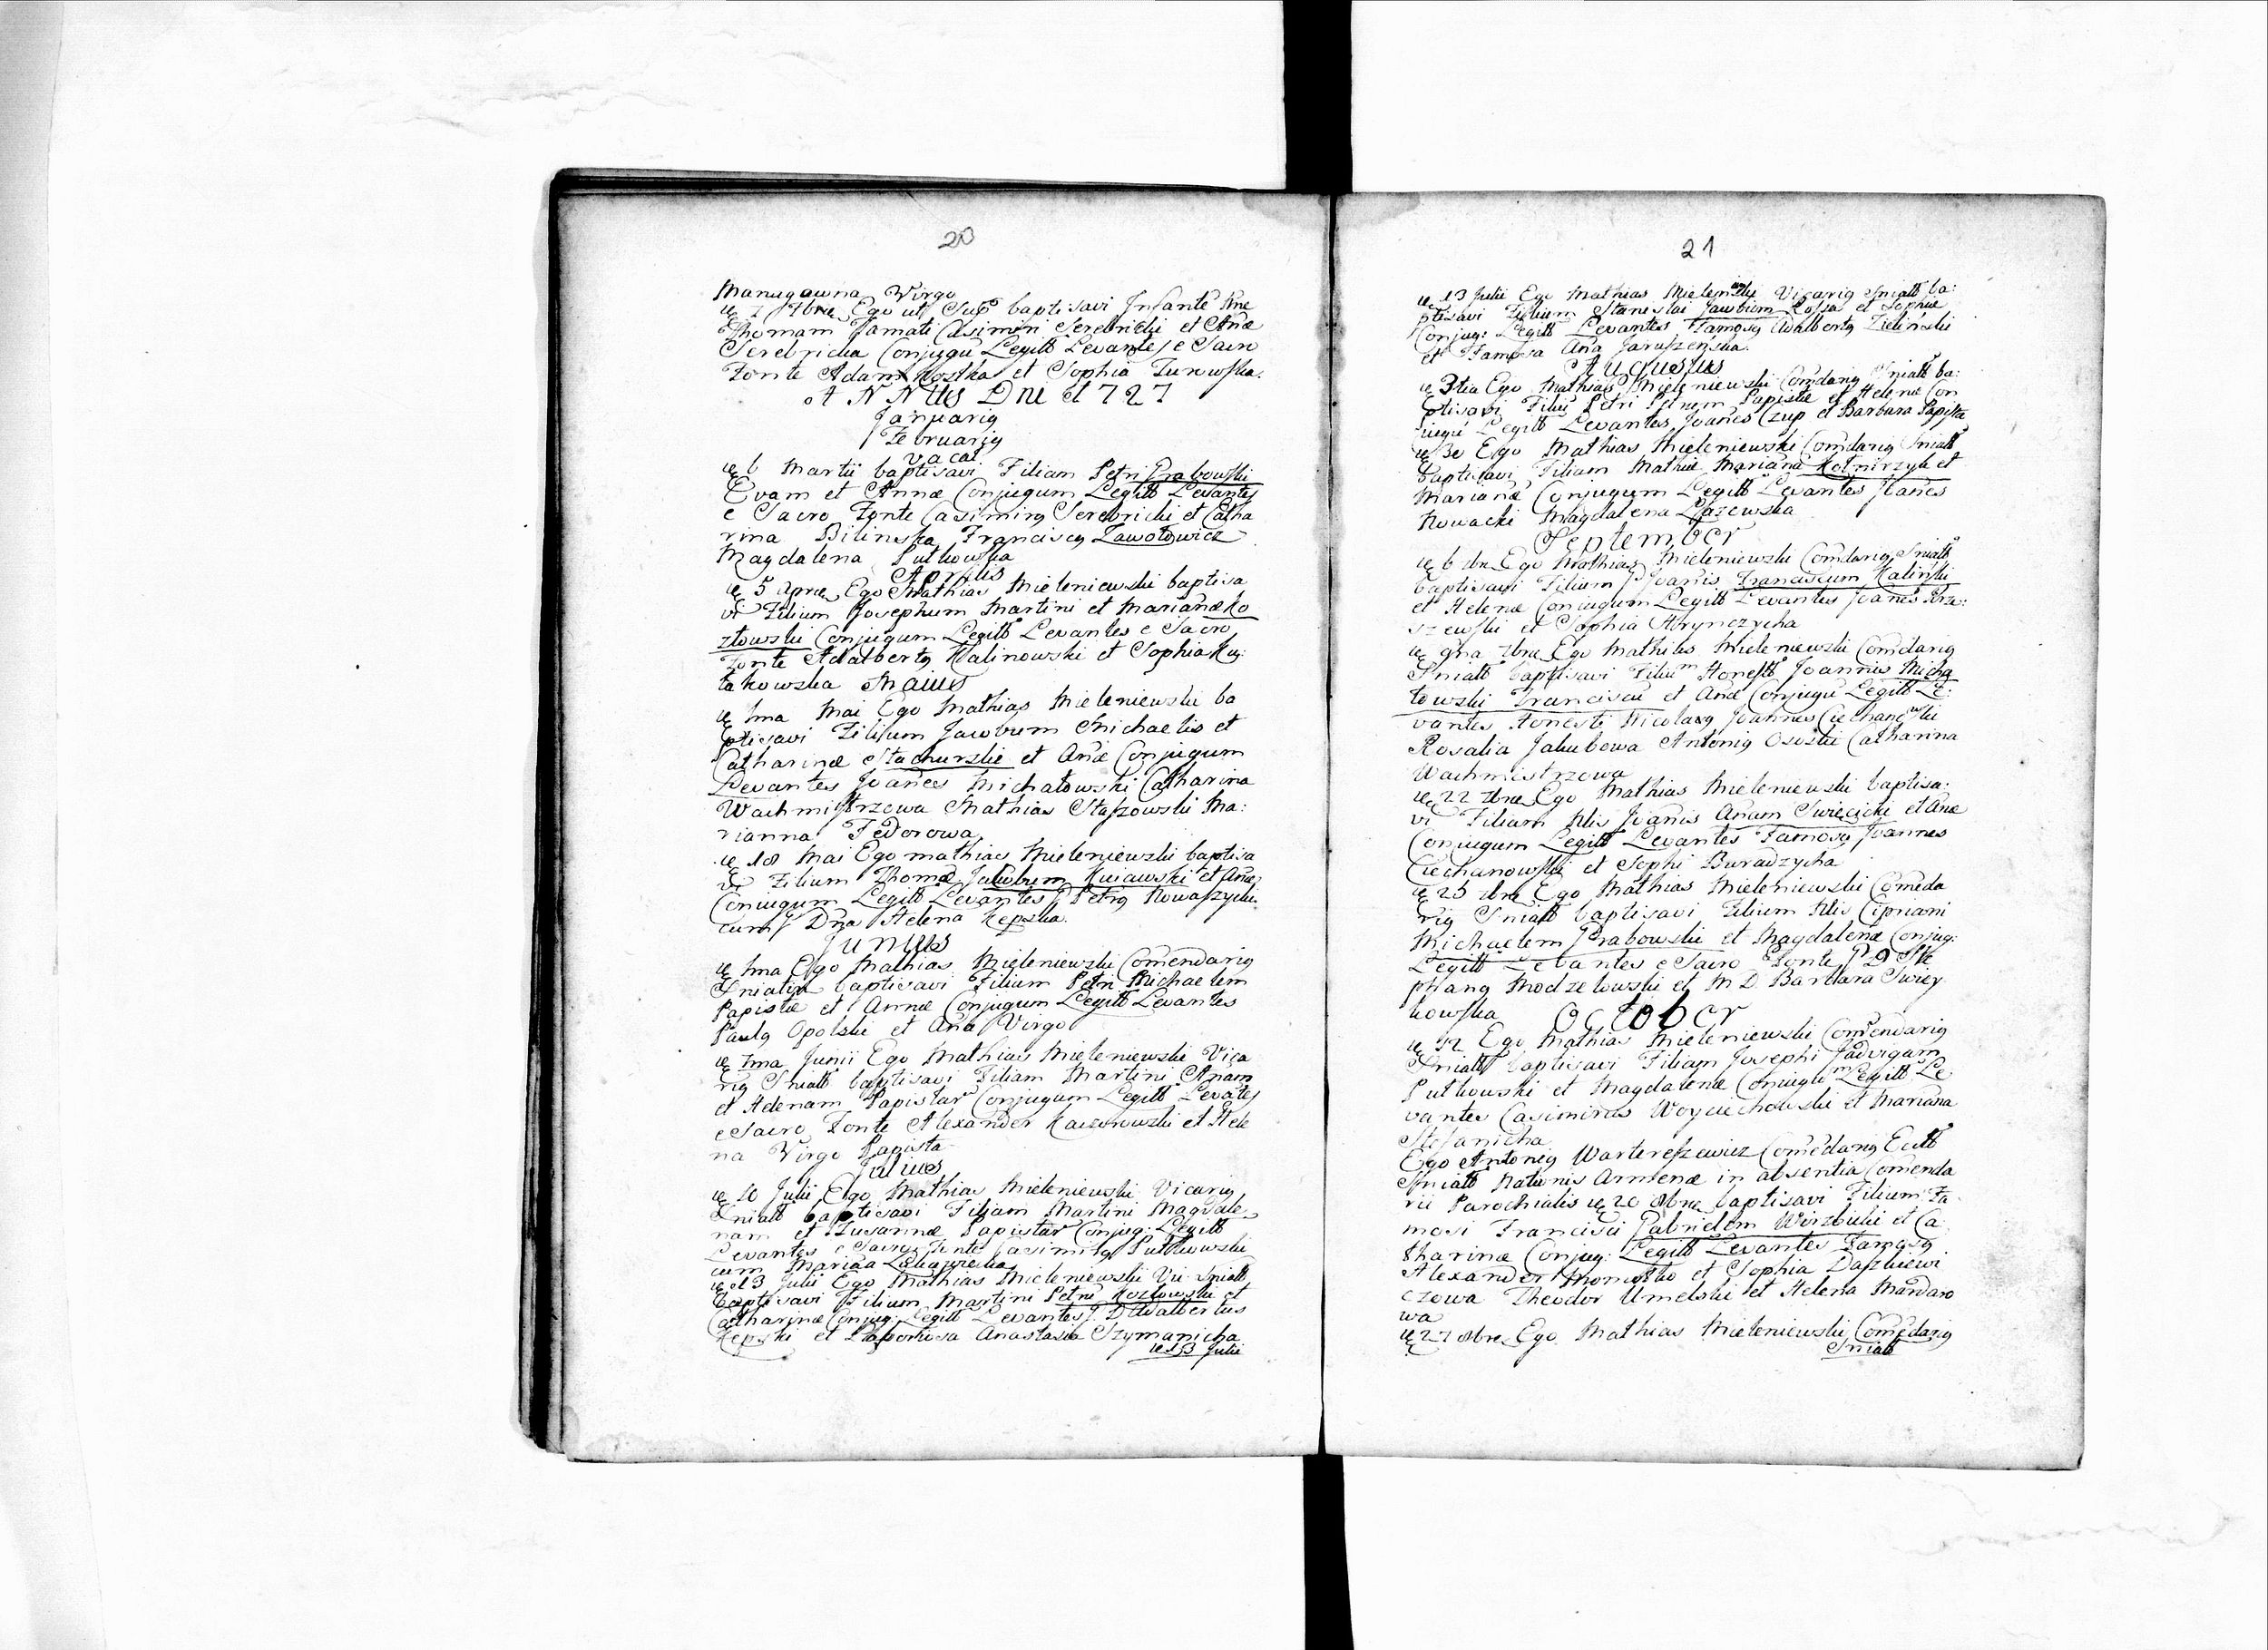 20
Manugawna Virgo
7 7bre Ego ut Sup baptisavi Infante nne
Thomam Famati Casimiri Serebricki et Anæ
Serebricka Conjugu Legitt Levantes e Sacro
Fonte Adam Kostka et Sophia Turowska.
ANNUS Dni 1727
Januariy
Februariy
vacat
6 Martii baptisavi Filiam Petri Grabowski
Evam et Annæ Conjugum Legitt Levantes
e Sacro Fonte Casimirg Serebricki et Catha
rina Bilinska Franciscg Zawotowicz
Magdalena Putkowska
Aprilis
5 Apre Ego Mathias Mieleniewski baptisa
vi Filium Josephum Martini et Marianæ Ko
ztowski Conjugum Legitt Levantes e Sacro
Fonte Adalbertg Kalinowski et Sophia Ku
takowska Maius
1ma Mai Ego Mathias Mieleniewski ba
ptisavi Filium Jacobum Michaelis et
Catharinæ Stachurskie et Anæ Conjugum
Levantes Joanes Michatowski Catharina
Wachmistrzowa Mathias Staszowski Ma:
rianna Fedorowa
18 Mai Ego mathias Mieleniewski baptisa
vi Filium Thomæ Jakobum Kuiawski et Anæ
Conjugum Legitt Levantes Petrg Kowaszycki
cum Dna Helena Kepska.
Junius
1ma Ego Mathias Mieleniewski Comendarig
Sniatin baptisavi Filium Petri Michaelem
Papistæ et Annæ Conjugum Legitt Levantes
Paulg Opolski et Ana Virgo
7ma Junii Ego Mathias Mieleniewski Vica
rig Sniatt baptisavi Filiam Martini Anam
et Helenam Papistar Conjugum Legitt Levates
e Sacro Fonte Alexander Kaczorowski et Hele
na Virgo Papista
Julius
10 Julii Ego Mathias Mieleniewski Vicarig
Sniatt baptisavi Filiam Martini Magdale
nam et Zusannæ Papistar Conjug: Legitt
Levantes e Sacro Fonte Casimirg Putkowski
cum Mariana
13 Julii Ego Mathias Mieleniewski Vic Sniatt
baptisavi Filium Martini Petru Kozlowski et
Catharinæ Conjug: Legitt Levantes D Adalbertus
Kepski et Anastasia Szymanicha
13 Julii
21
13 Julii Ego Mathias Mieleniewski Vicarig Sniatt ba:
ptisavi Filium Stanislai Jacobum Kossa et Sophiæ
Conjug: Legitt Levantes Famosg Adalbertg Zielinski
et Famosa Ana Jaruszenska.
Augustus
3tia Ego Mathias Mieleniewski Comdarig Sniatt ba:
ptisavi Filiu Petri Petrum Papistæ et Helenæ Con
iugu Legitt Levantes Joanes Czup et Barbara Papistæ
30 Ego Mathias Mieleniewski Comdarig Sniatt
baptisavi Filiam Mathiæ Mariana Kotnirzyk et
Marianæ Conjugum Legitt Levantes Joanes
Nowacki Magdalena Lazewska
September
6 7bre Ego Mathias Mieleniewski Comdarig Sniatt
baptisavi Filium Joanis Franciscum Kalinski
et Helenæ Conjugum Legitt Levantes Joanes Brze:
szewski et Sophia Hrynczycha
9na 7bre Ego Mathias Mieleniewski Comdarig
Sniatt baptisavi Filium Honestt Joannis Micha
towski Franciscu et Anæ Conjugu Legitt Le:
vantes Honesti Nicolaug Joannes Ciechanowski
Rosalia Jakubowa Antonig Ososki Catharina
Wachmistrzowa
22 7bre Ego Mathias Mieleniewski baptisa:
vi Filiam Joanis Anam Swiecicki et Anæ
Conjugum Legitt Levantes Famosg Joannes
Ciechanowski et Sophi Buradzycha
25 7bre Ego Mathias Mieleniewski Comeda
rig Sniatt baptisavi Filium Cipriani
Michaelem Grabowski et Magdalenæ Conjug:
Legitt Levantes e Sacro Fonte D Ste
phang Modzelowski et M D Barbara Swiey
kowska October
12 Ego Mathias Mieleniewski Comendarig
Sniatt baptisavi Filiam Josephi Jadvigam
Putkowski et Magdalenæ Coniugum Legitt Le
vantes Casimirus Woyciechowski et Mariana
Stefanicha
Ego Antonig Warteresiewicz Comedarig Ecltt
Sniatt Nationis Armenæ in absentia Comenda
rii Parochialis 20 8bre baptisavi Filium Fa
mosi Francisci Gabrielem Wirzbicki et Ca
tharinæ Conjug: Legitt Levantes Famosg
Alexander et Sophia Daszkiewi
czowa Theodor Umelski et Helena Mardaro
wa
27 8bre Ego Mathias Mieleniewski Comedarig
Sniatt